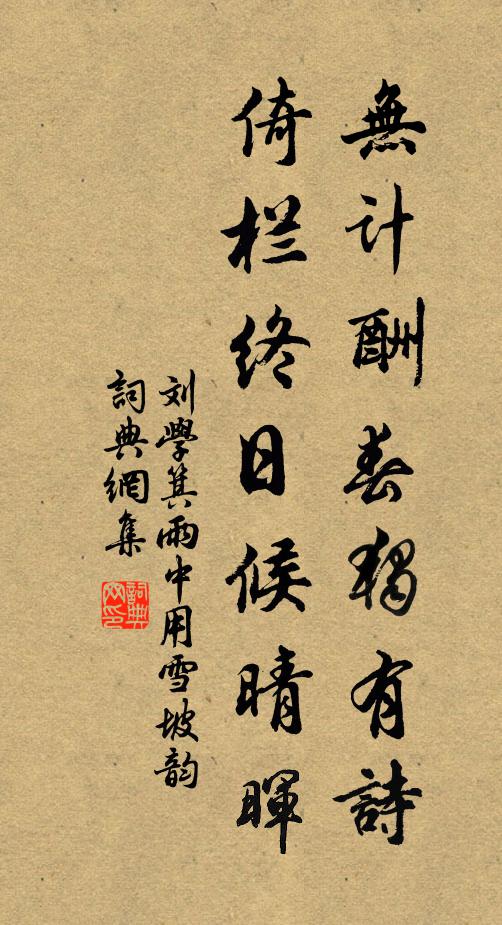 無计酬春獨有詩
倚栏終日候晴暉
刘學箕雨中用雪坡韵
詞典網集
詞典网印